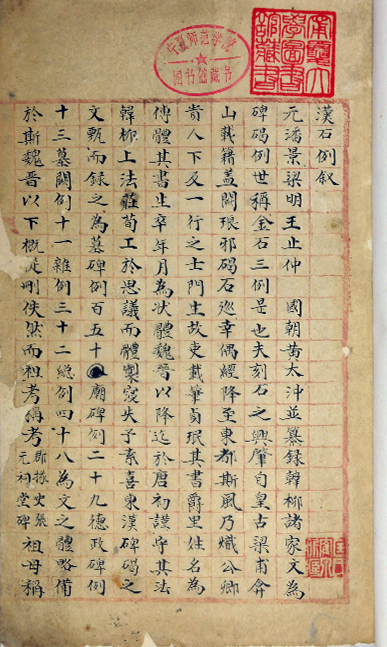 甯夏大學圖書館藏書
宁夏师范学院
图书馆藏书
漢石例叙
元潘景梁明王止仲 國朝黃太沖並纂錄韓柳諸家文為
碑碣例世稱金石三例是也夫刻石之興肇自皇古梁甫弇
山載籍蓋闕琅邪碣石巡幸偶經降至東都斯風乃熾公卿
貴人下及一行之士門生故吏載筆貞珉其書爵里姓名為
傳體其書生卒年月為狀體魏晉以降迄於唐初謹守其法
韓柳上法莊荀工於思議而體製變失予素喜東漢碑碣之
文甄而錄之為墓碑例百五十廟碑例二十九德政碑例
十三墓闕例十一雜例三十二總例四十八為文之體略備
於斯魏晉以下概從刪佚然而祖考稱考郡掾史張元祠堂碑祖母稱